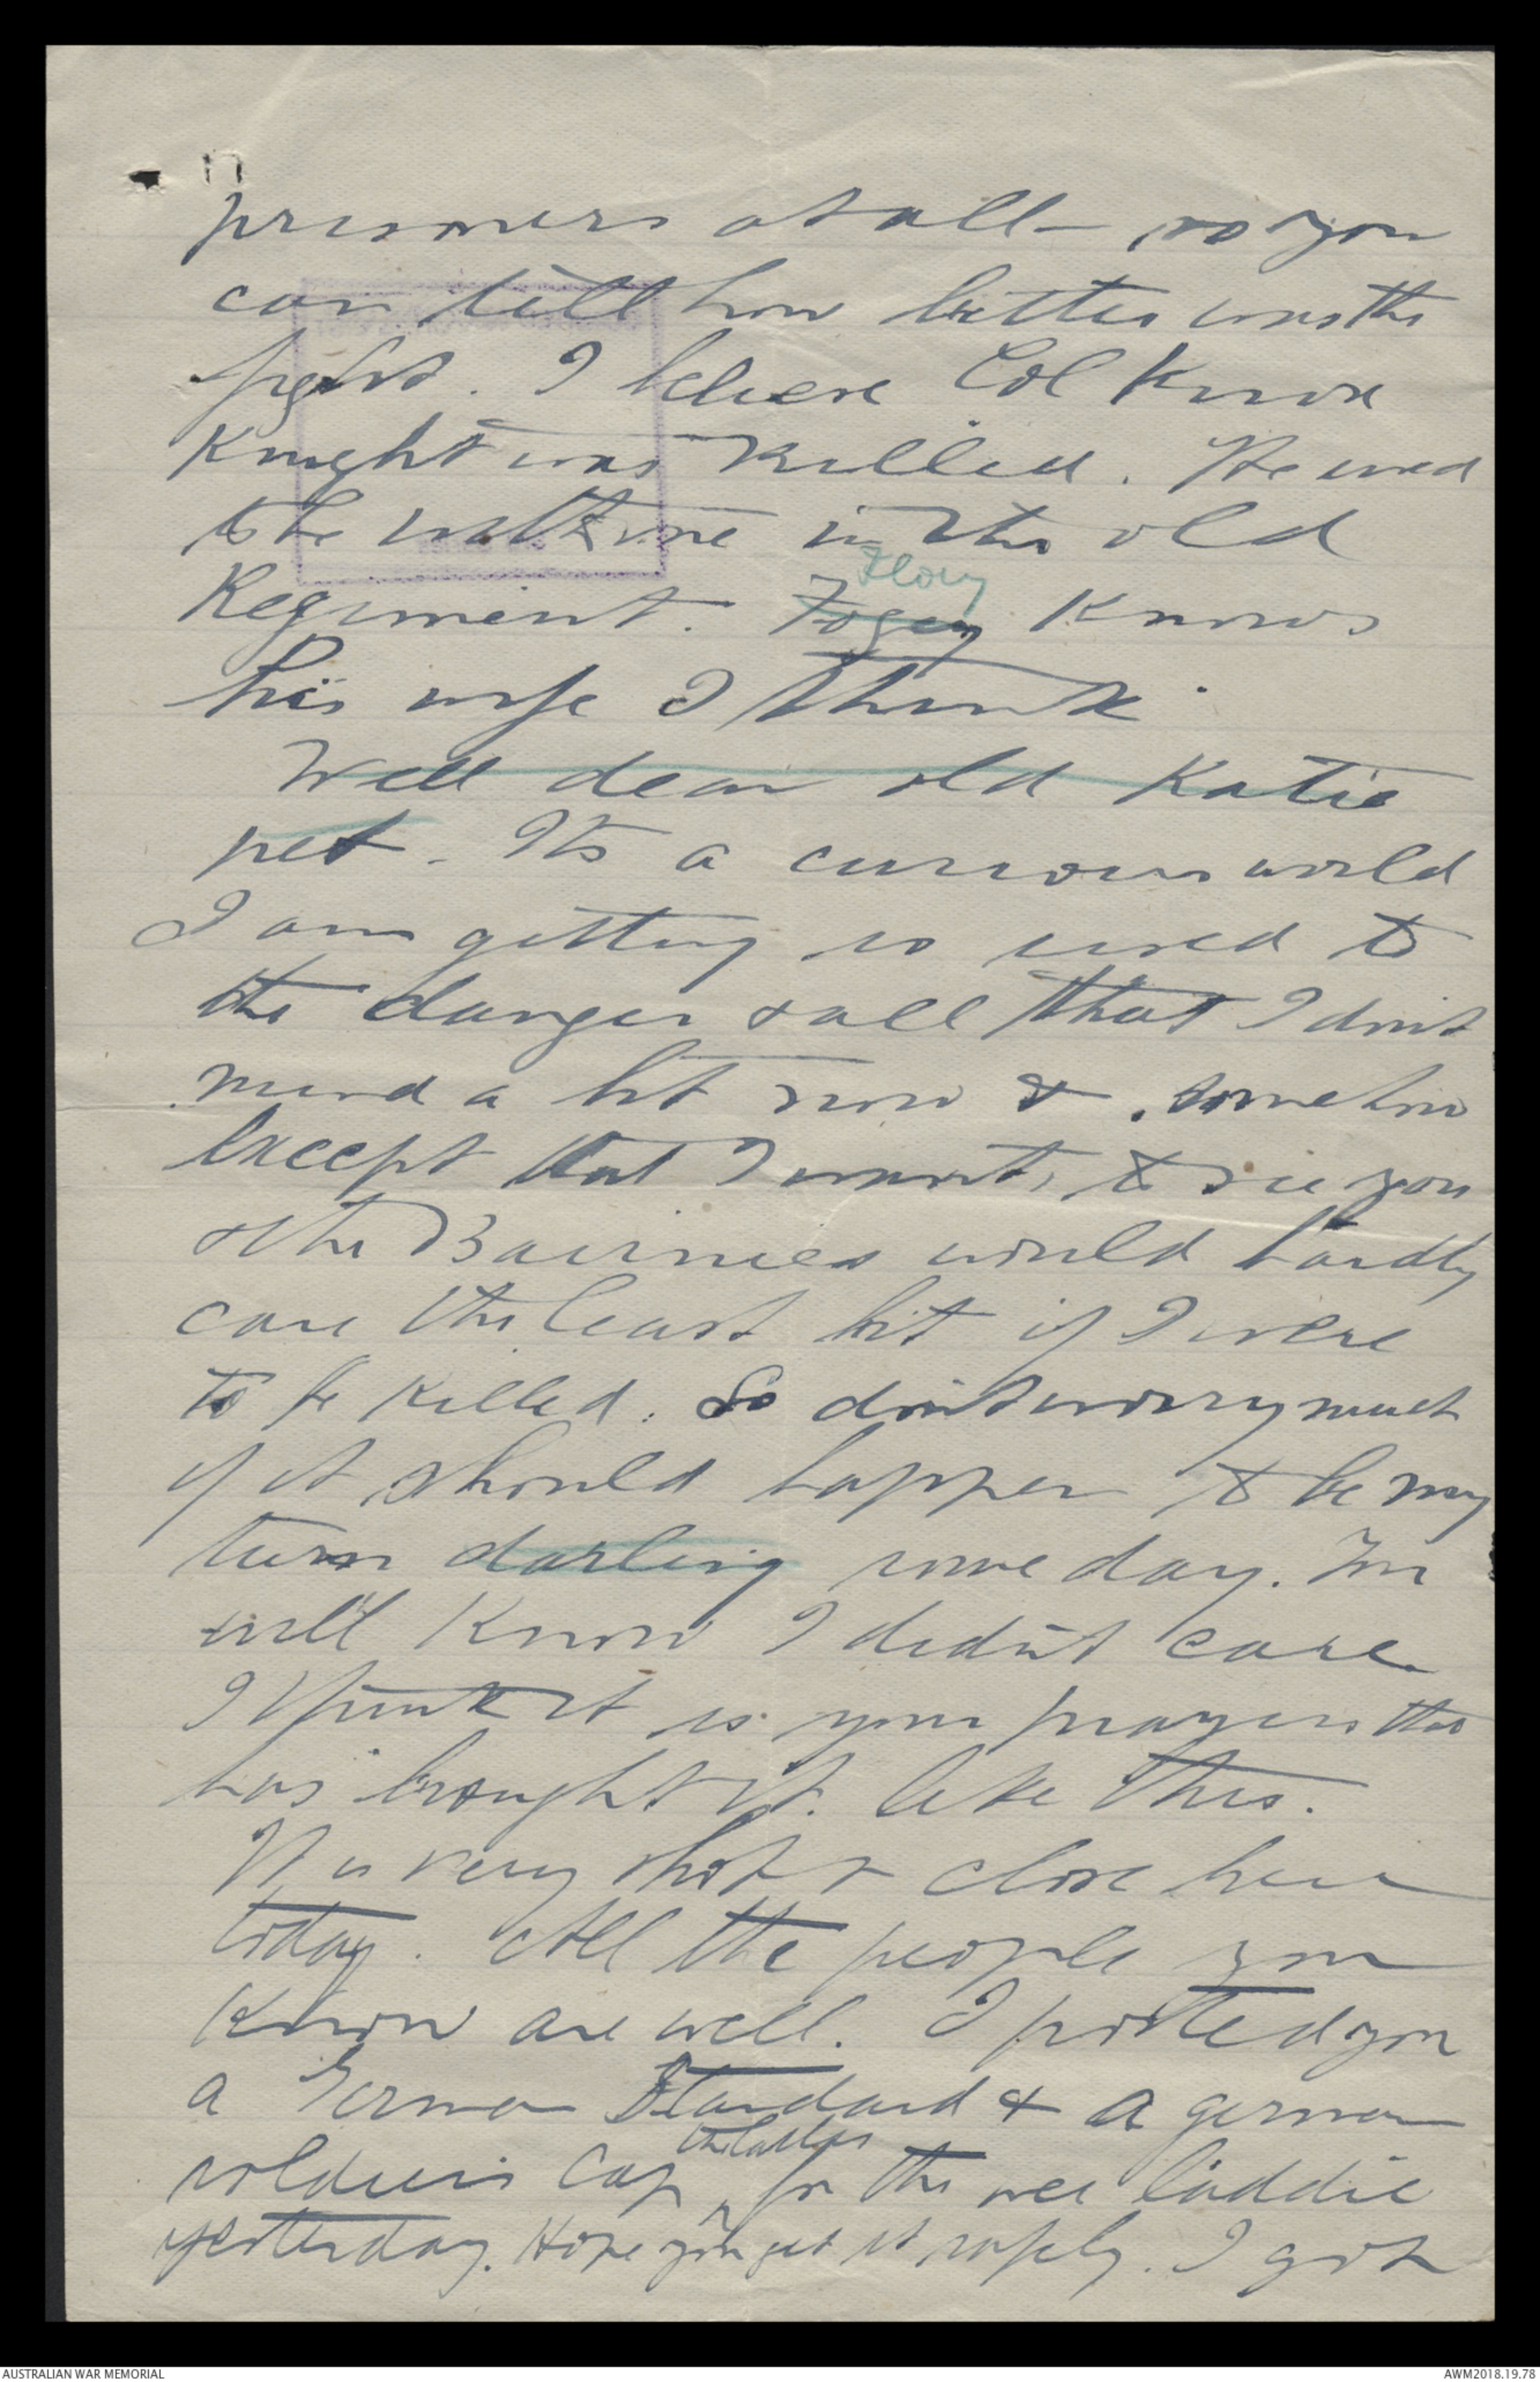 prisoners at all - so you
can tell how bitter was the
fight. I believe Col Knox
Knight was killed. He used
to be with me in the old
Regiment. Fogey Flory knows
his wife I think.
Well dear old Katie
pet. Its a curious world
I am getting so used to
the danger & all that I dont
mind a bit now & somehow
except that I want to see you
& the Bairnies would hardly
care the least bit if I were
to be killed. So dont worry much
if it should happen to be my
turn darling some day. You
will know I didn't care.
I think it is your prayers that
has brought it like this.
It is very hot & close here
today. All the people you
know are well. I posted you
a German Standard & a german
soldiers Cap, the latter for the wee laddie
yesterday. Hope you get it safely. I got
AUSTRALIAN WAR MEMORIAL
AWM2018.19.78